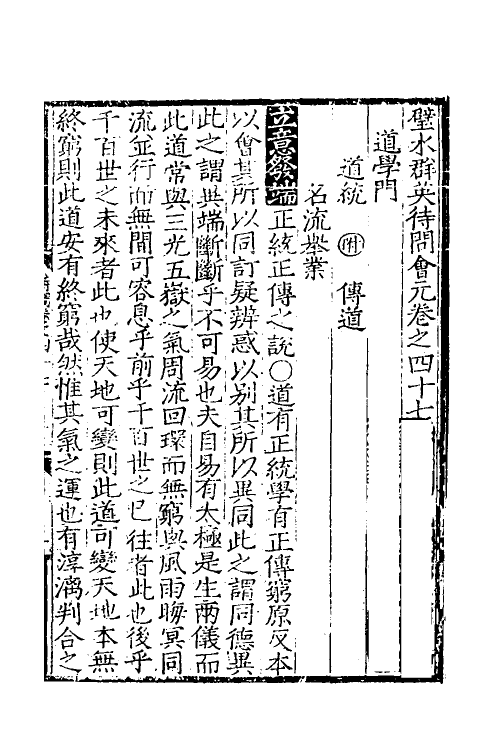 璧水群英待問會元卷之四十七
道學門
道統 附 傳道
名流舉業
立意發端 正統正傳之說○道有正統學有正傳窮原反本
以會其所以同訂疑辨惑以别其所以異同此之謂同德異
此之謂異端斷斷乎不可易也夫自易有太極是生兩儀而
此道常與三光五嶽之氣周流回環而無窮與風雨晦冥同
流並行而無間可容息乎前乎千百世之已往者此也後乎
千百世之未來者此也使天地可變則此道可變天地本無
終窮則此道安有終窮哉然惟其氣之運也有淳漓判合之